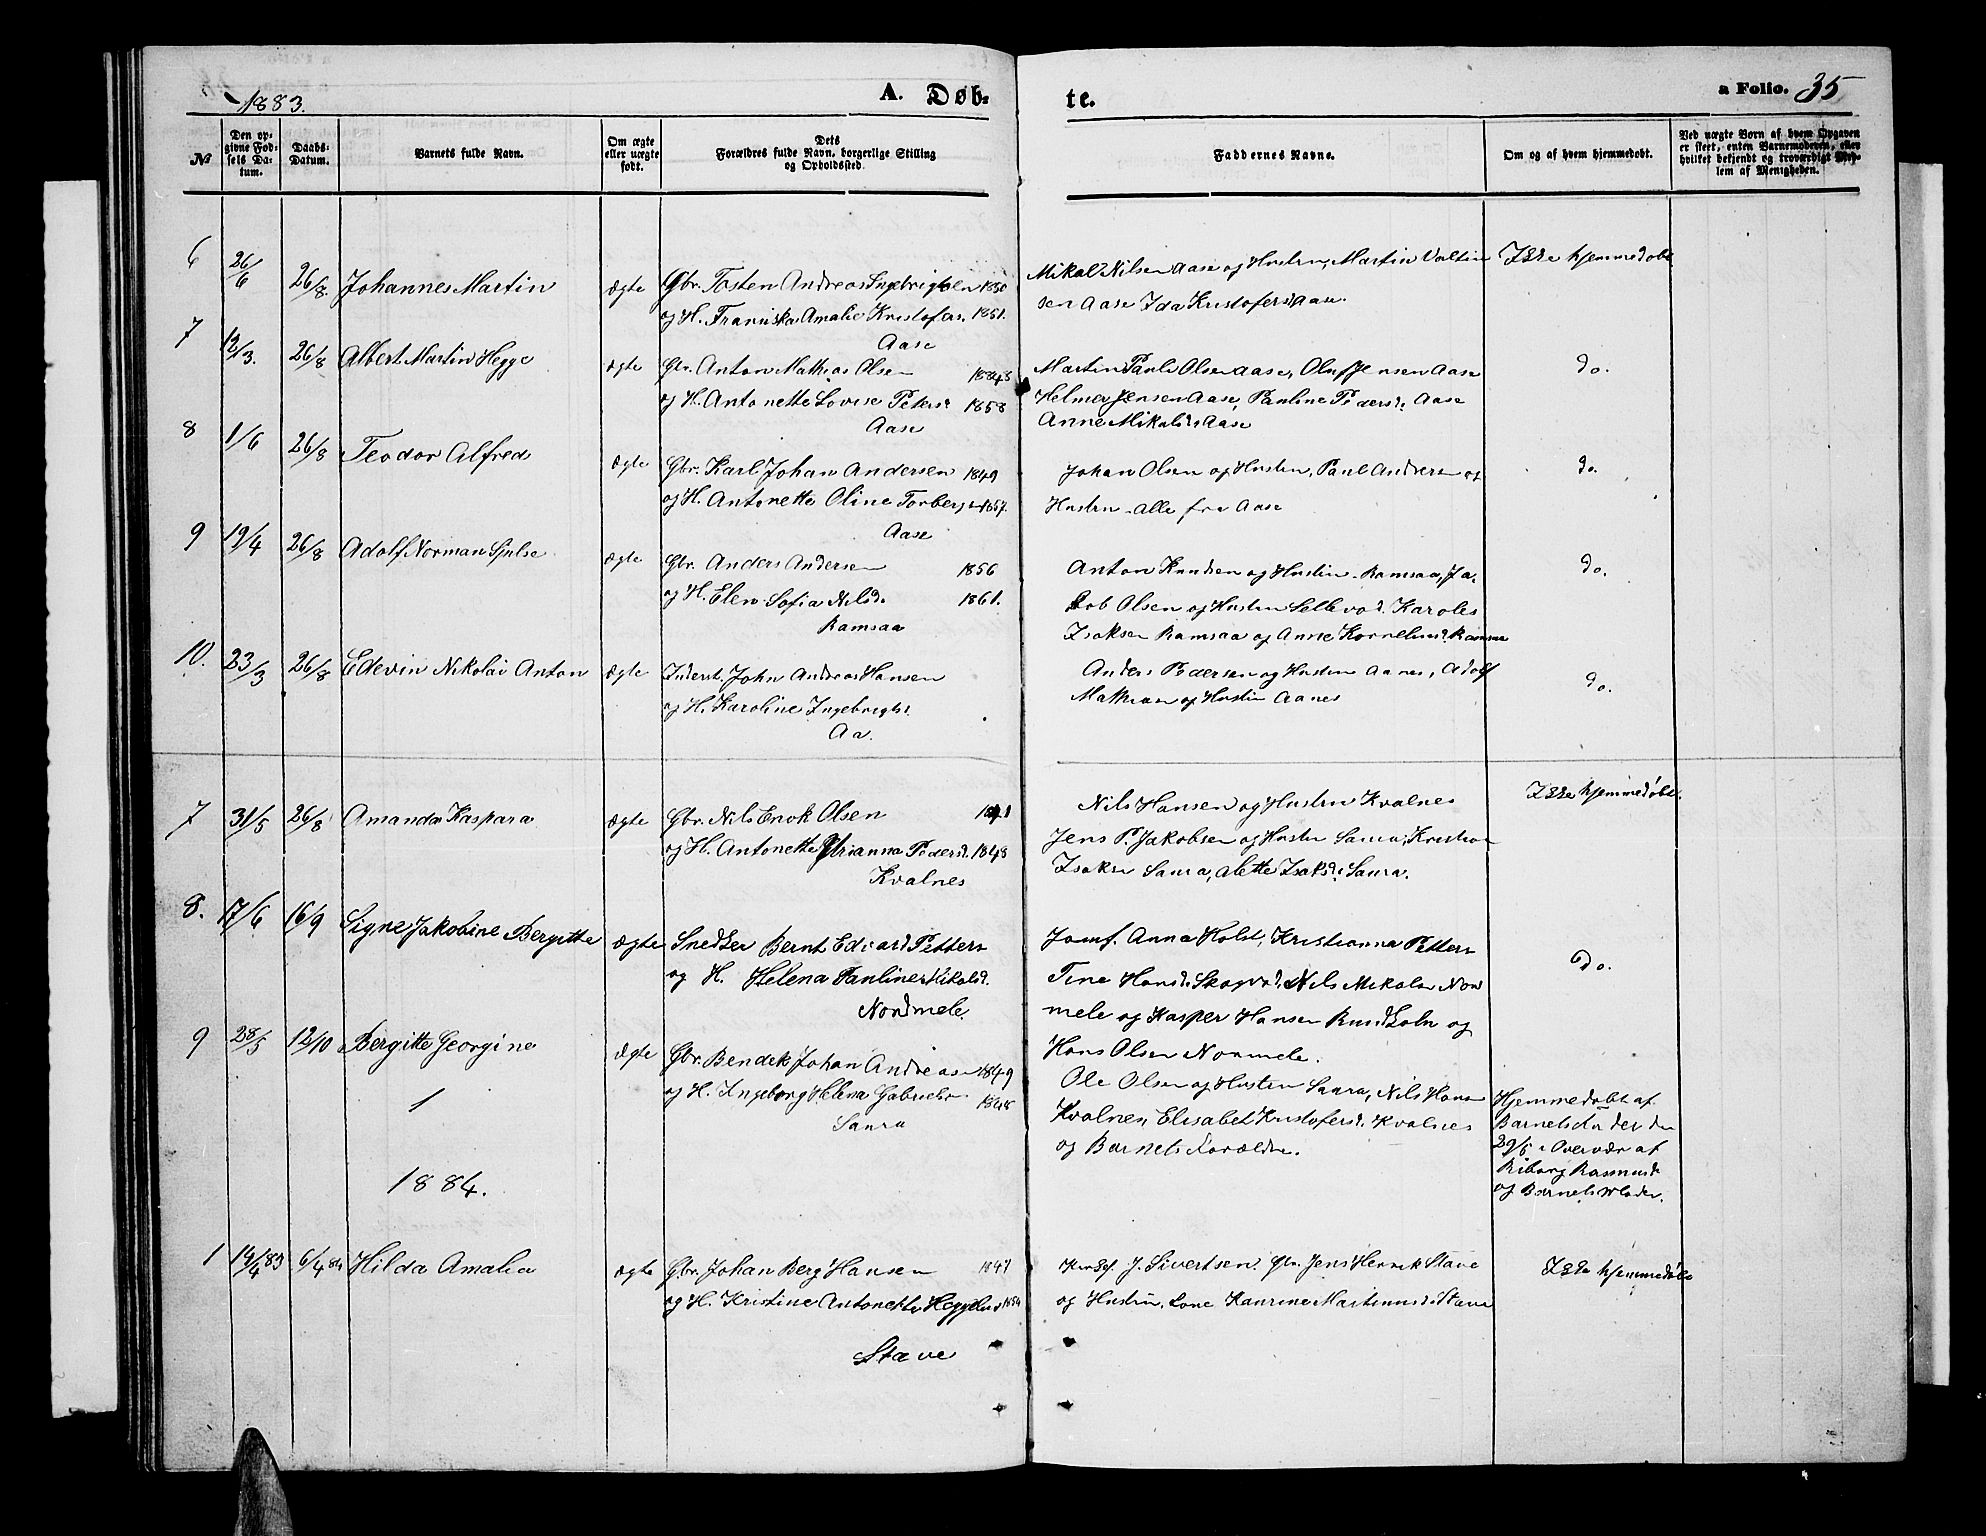 1883.
A. Døb-
te.
a Folio. 35
№
Den op-
givne Fød-
sels Da-
tum.
Daabs-
Datum.
Barnets fulde Navn.
Om ægte
eller uægte
født.
Dets
Forældres fulde Navn, borgerlige Stilling
og Opholdssted.
Faddernes Navne.
Om og af hvem hjemmedøbt.
Ved uægte Børn af hvem Opgaven
er skeet, enten Barnemoderen, eller
hvilket bekjendt og troværdigt Med-
lem af Menigheden.
6 26/6 26/8 Johannes Martin ægte Gbr. Tosten Andreas Ingebrigtsen 1850
og H. Franiska Amalie Kristofers. 1851.
Aase
Mikal Nilsen Aase og Hustru, Martin Valtin
sen Aase Ida Kristofersd Aase.
Ikke hjemmedøbt
7 12/3. 26/8 Albert Martin Hegge ægte Gbr. Anton Mathias Olsen
og H. Antonette Lovise Petersd 1858
Aase
Martin Paul Olsen Aase, Oluf Jensen Aase
Helmer Jensen Aase, Pauline Pedersd. Aase
Anne Mikalsd Aase
do.
8 1/6 26/8 Teodor Alfred ægte Gbr. Karl Johan Andersen 1849
og H. Antonette Oline Torbergs 1857.
Aase
Johan Olsen og Hustru, Paul Andersen og
Hustru alle fra Aase
do.
9 19/4 26/8 Adolf Norman ægte Gbr. Anders Andersen 1856
og H. Elen Sofia Nilsd. 1861.
Ramsaa
Anton Knudsen og Hustru Ramsaa, Ja-
kob Olsen og Hustru Sellevod. Karoles
Isaksen Ramsaa og Anne Korneliusd. Ramsaa
do.
10. 23/3 26/8 Edevin Nikolai Anton ægte Inderst. John Andreas Hansen
og H. Karoline Ingebrigts.
Aa.
Anders Pedersen og Hustru Aanes, Adolf
Mathiasen og Hustru Aanes
do.
7 31/5 26/8 Amanda Kaspara ægte Gbr. Nils Enok Olsen
og H. Antonette Arianna Pedersd. 1848
Kvalnes
Nils Hansen og Hustru Kvalnes
Jens P. Jakobsen og Hustru Saura, Kristian
Isaksen Saura, Alette Isaksd. Saura.
Ikke hjemmedøbt.
8. 17/6 16/9 Signe Jakobine Bergitte ægte Snedker Bernt Edvard Petters
og H. Helena Pauline Mikalsd.
Nordmele.
Jomf. Anna Holst, Kristianna Petters
Tine Hansd. Skogvod. Nils Mikalsen Nor
mele og Kasper Hansen Bundkoln og
Hans Olsen Normele.
do.
9 28/5 12/10 Bergitte Georgine ægte Gbr. Bendek Johan Andreasen 1849
og H. Ingeborg Helena Gabrielsd. 1848
Saura
1
Ole Olsen og Hustru Saura, Nils Hansen
Kvalnes, Elisabet Kristofersd. Kvalnes
og Barnets Forældre.
Hjemmedøbt af
Barnets Fader den
29/5 i Overvær af
Riborg Rasmusd.
og Barnets Moder.
1884.
1 14/4 83 6/4 84 Hilda Amalia ægte Gbr. Johan Berg Hansen 1847
og H. Kristine Antonette Heggelund 1854
Stave
J. Sivertsen. Gbr. Jens Henrik Stave
og Hustru, Lone Kaurine Martinusd. Stave
Ikke hjemmedøbt